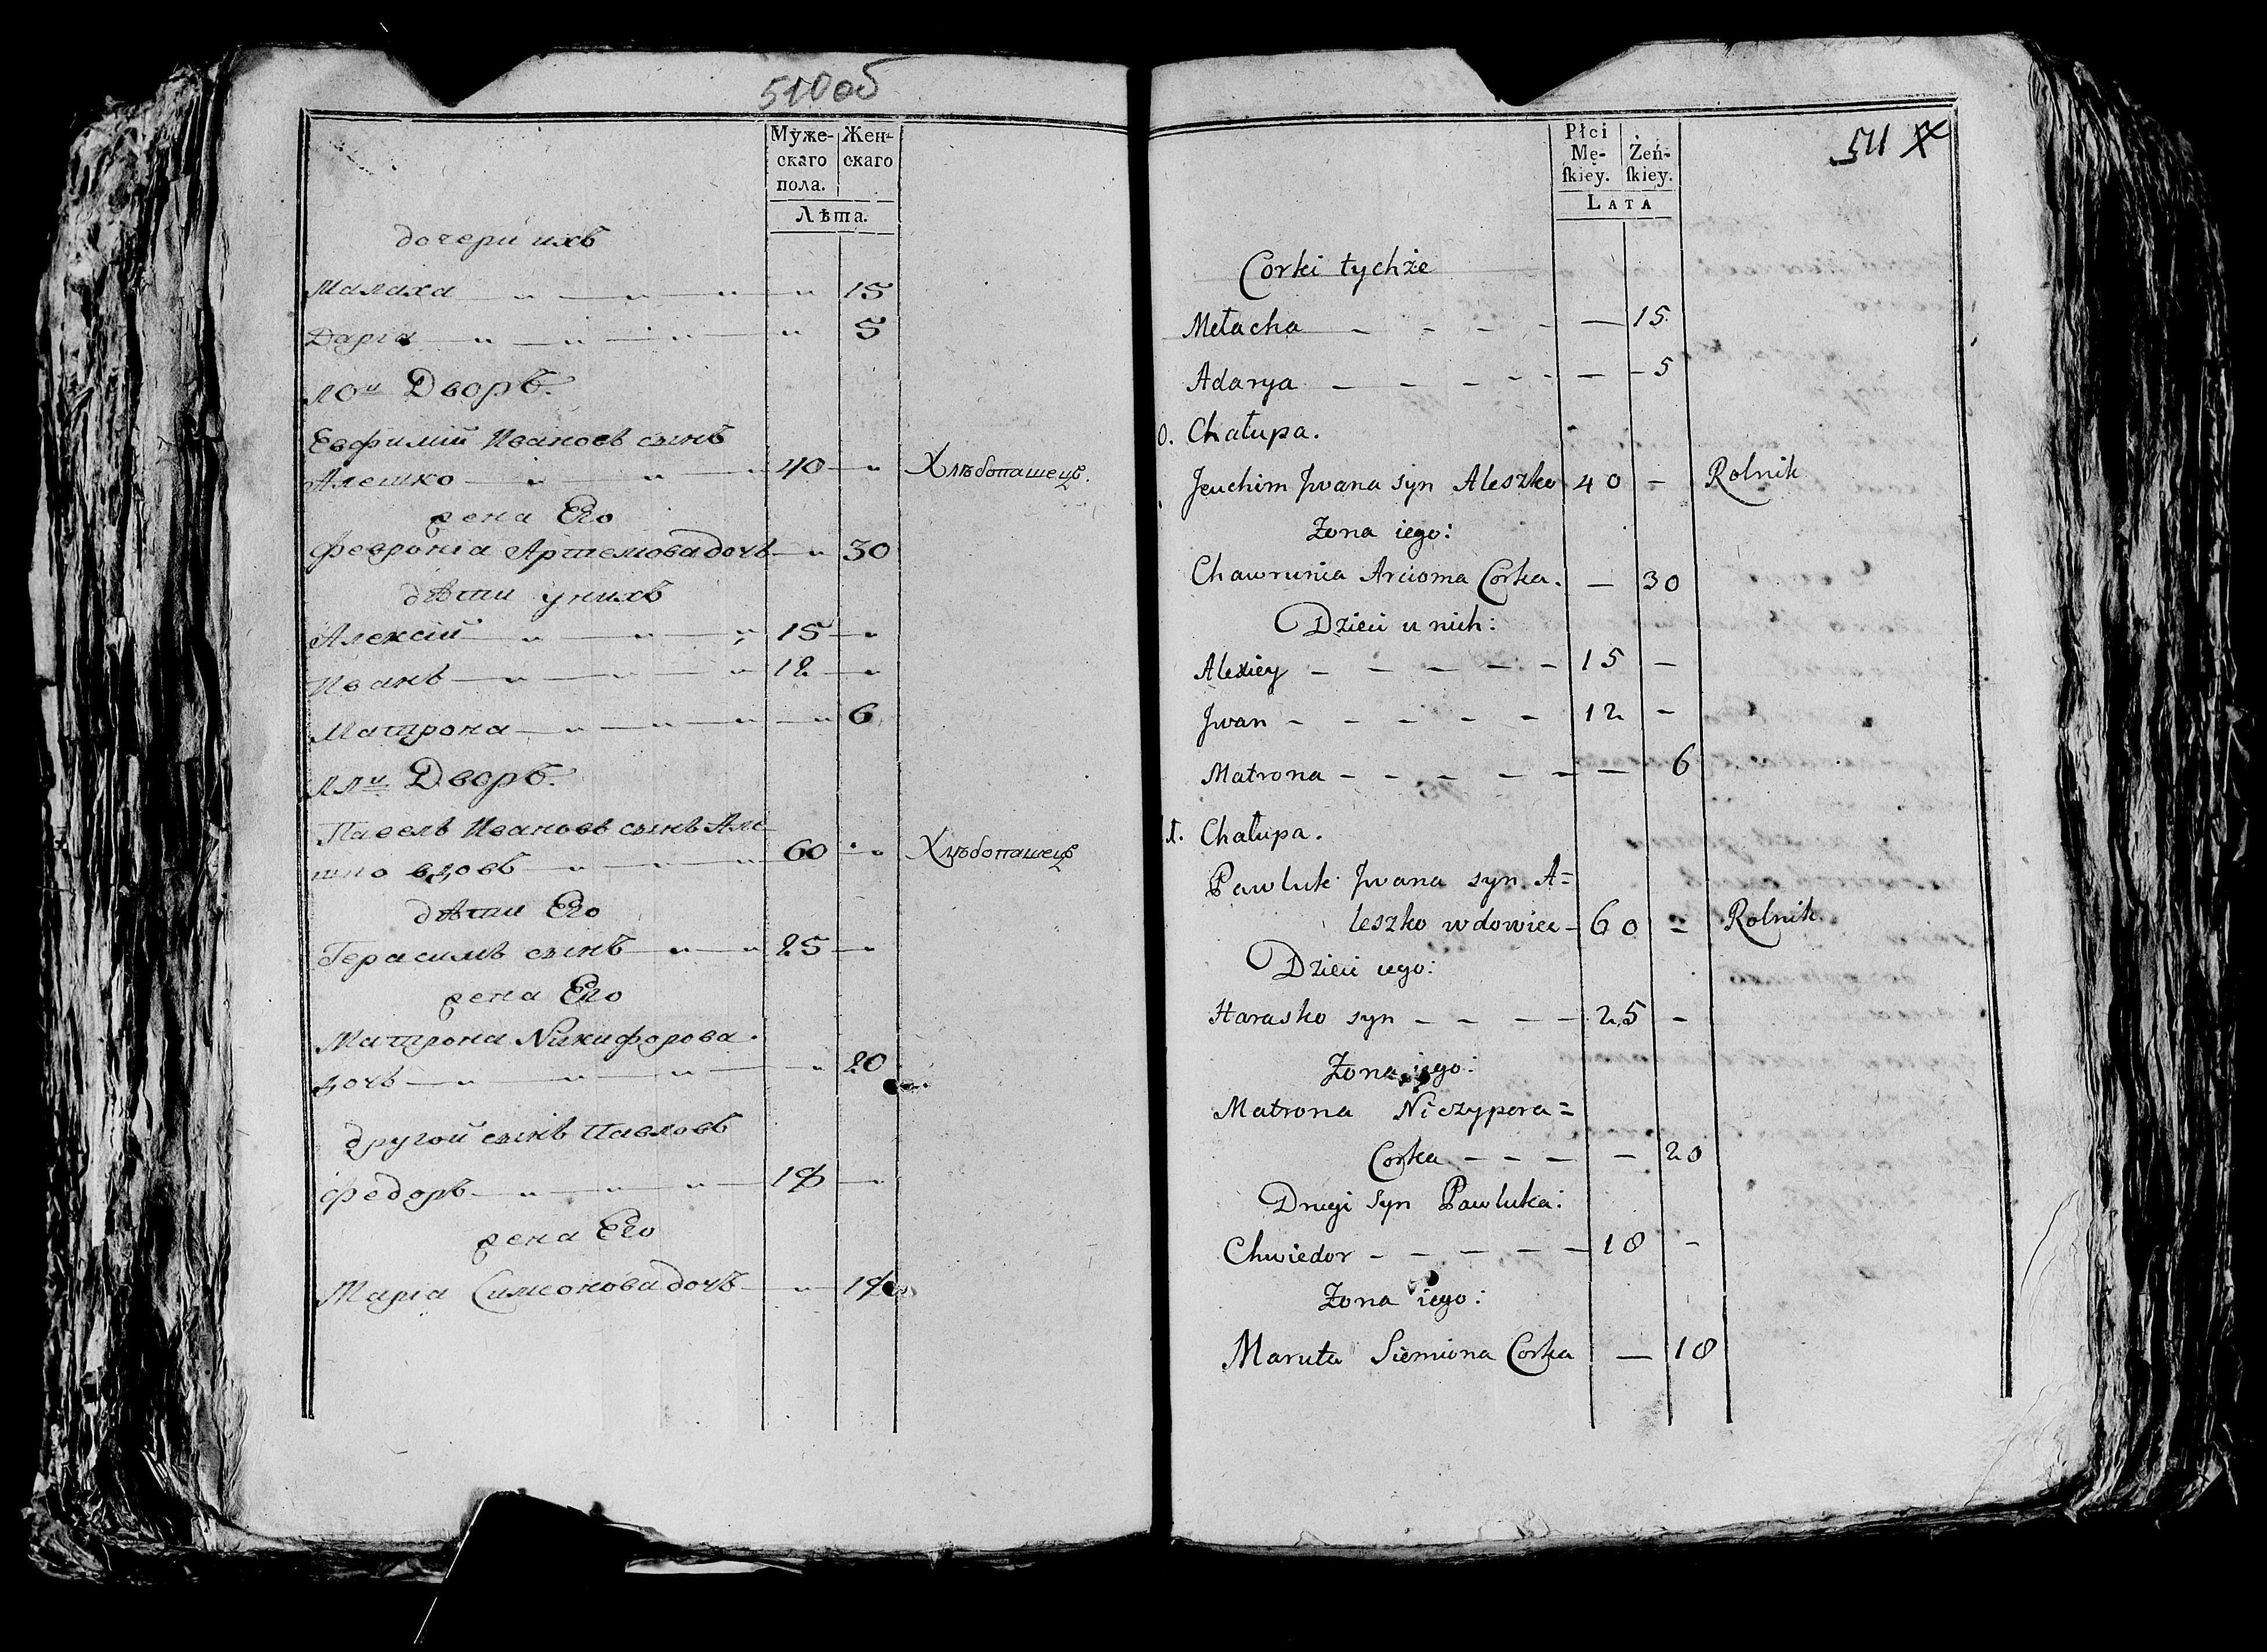 510об
Муже-
скаго
пола.
Жен-
скаго
Лѣта.
дочери ихъ
Малаха 15
Дарія 5
10й Дворъ.
Евфимій Ивановъ сынъ
Алешко 40 Хлѣбопашецъ.
жена Его
Февронія Артемова дочь 30
дѣти у нихъ
Алексій 15
Иванъ 12
Матрона 6
11й Дворъ.
Павелъ Ивановъ сынъ Але-
шко вдовъ 60 Хлѣбопашецъ
дѣти Его
Герасимъ сынъ 25
жена Его
Матрона Никифорова
дочь 20
другой сынъ Павловъ
Федоръ 18
жена Его
Марія Симеонова дочь 18
511
Płci
Mę-
ſkiey.
Żeń-
ſkiey.
LATA
Corki tychże
Mełacha — 15.
Adarya — 5
0. Chałupa.
Jeuchim Jwana syn Aleszko 40 – Rolnik
Żona iego:
Chawrunia Arcioma Corka. — 30
Dzieci u nich:
Alexiey 15 –
Jwan 12 –
Matrona — 6
1. Chałupa.
Pawluk Jwana syn A=
leszko wdowiec 60 = Rolnik
Dzieci iego:
Harasko syn 25 –
Żona iego:
Matrona Niczypora=
Corka – 20
Drugi Syn Pawluka:
Chwiedor 18 –
Żona iego:
Maruta Siemiona Corka — 18